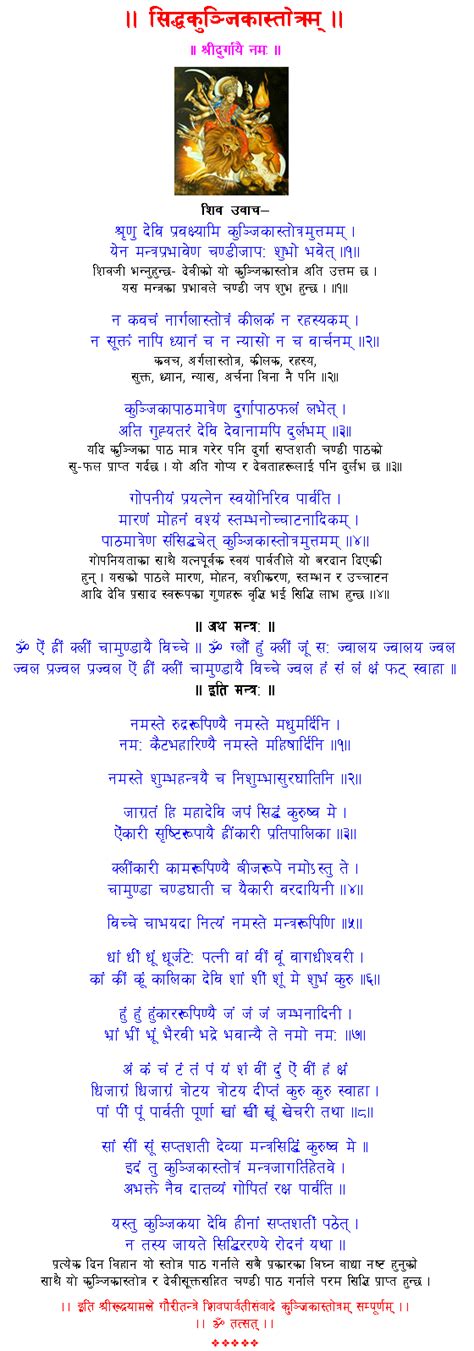 ॥ सिद्धकुञ्जिकास्तोत्रम् ॥
॥ श्रीदुर्गायै नमः ॥
शिव उवाच–
श्रृणु देवि प्रवक्ष्यामि कुञ्जिकास्तोत्रमुत्तमम् ।
येन मन्त्रप्रभावेण चण्डीजापः शुभो भवेत् ॥१॥
शिवजी भन्नुहुन्छ- देवीको यो कुञ्जिकास्तोत्र अति उत्तम छ ।
यस मन्त्रका प्रभावले चण्डी जप शुभ हुन्छ ।॥१॥
न कवचं नार्गलास्तोत्रं कीलकं न रहस्यकम् ।
न सूक्तं नापि ध्यानं च न न्यासो न च वार्चनम् ॥२॥
कवच, अर्गलास्तोत्र, कीलक, रहस्य,
सुक्त, ध्यान, न्यास, अर्चना विना नै पनि ॥२॥
कुञ्जिकापाठमात्रेण दुर्गापाठफलं लभेत् ।
अति गुह्यतरं देवि देवानामपि दुर्लभम् ॥३॥
यदि कुञ्जिका पाठ मात्र गरेर पनि दुर्गा सप्तशती चण्डी पाठको
सु-फल प्राप्त गर्दछ । यो अति गोप्य र देवताहरूलाई पनि दुर्लभ छ ॥३॥
गोपनीयं प्रयत्नेन स्वयोनिरिव पार्वति ।
मारणं मोहनं वश्यं स्तम्भनोच्चाटनादिकम् ।
पाठमात्रेण संसिद्ध्येत् कुञ्जिकास्तोत्रमुत्तमम् ॥४॥
गोपनियताका साथै यत्नपूर्वक स्वयं पार्वतीले यो बरदान दिएकी
हुन् । यसको पाठले मारण, मोहन, वशीकरण, स्तम्भन र उच्चाटन
आदि देवि प्रसाद स्वरूपका गुणहरू वृद्धि भई सिद्धि लाभ हुन्छ ॥४॥
॥ अथ मन्त्रः ॥
ॐ ऐं ह्रीं क्लीं चामुण्डायै विच्चे ॥ ॐ ग्लौं हुं क्लीं जूं सः ज्वालय ज्वालय ज्वल
ज्वल प्रज्वल प्रज्वल ऐं ह्रीं क्लीं चामुण्डायै विच्चे ज्वल हं सं लं क्षं फट् स्वाहा ॥
॥ इति मन्त्रः ॥
नमस्ते रुद्ररूपिण्यै नमस्ते मधुमर्दिनि ।
नमः कैटभहारिण्यै नमस्ते महिषार्दिनि ॥१॥
नमस्ते शुम्भहन्त्रयै च निशुम्भासुरघातिनि ॥२॥
जाग्रतं हि महादेवि जपं सिद्धं कुरुष्व मे ।
ऐंकारी सृष्टिरूपायै ह्रींकारी प्रतिपालिका ॥३॥
क्लींकारी कामरूपिण्यै बीजरूपे नमोऽस्तु ते ।
चामुण्डा चण्डघाती च यैकारी वरदायिनी ॥४॥
विच्चे चाभयदा नित्यं नमस्ते मन्त्ररूपिणि ॥५॥
धां धीं धूं धूर्जटेः पत्नी वां वीं वूं वागधीश्वरी ।
क्रां क्रीं क्रूं कालिका देवि शां शीं शूं मे शुभं कुरु ॥६॥
हुं हुं हुंकाररूपिण्यै जं जं जं जम्भनादिनी ।
भ्रां भ्रीं भ्रूं भैरवी भद्रे भवान्यै ते नमो नमः ॥७॥
अं कं चं टं तं पं यं शं वीं दुं ऐं वीं हं क्षं
धिजाग्रं धिजाग्रं त्रोटय त्रोटय दीप्तं कुरु कुरु स्वाहा ।
पां पीं पूं पार्वती पूर्णा खां खीं खूं खेचरी तथा ॥८॥
सां सीं सूं सप्तशती देव्या मन्त्रसिद्धिं कुरुष्व मे ॥
इदं तु कुञ्जिकास्तोत्रं मन्त्रजागर्तिहेतवे ।
अभक्ते नैव दातव्यं गोपितं रक्ष पार्वति ॥
यस्तु कुञ्जिकया देवि हीनां सप्तशतीं पठेत् ।
न तस्य जायते सिद्धिररण्ये रोदनं यथा ॥
प्रत्येक दिन विहान यो स्तोत्र पाठ गर्नाले सबै प्रकारका विघ्न वाधा नष्ट हुनुको
साथै यो कुञ्जिकास्तोत्र र देवीसूक्तसहित चण्डी पाठ गर्नाले परम सिद्धि प्राप्त हुन्छ ।
।। इति श्रीरूद्रयामले गौरीतन्त्रे शिवपार्वतीसंवादे कुञ्जिकास्तोत्रम् सम्पूर्णम् ।।
।। ॐ तत्सत् ।।